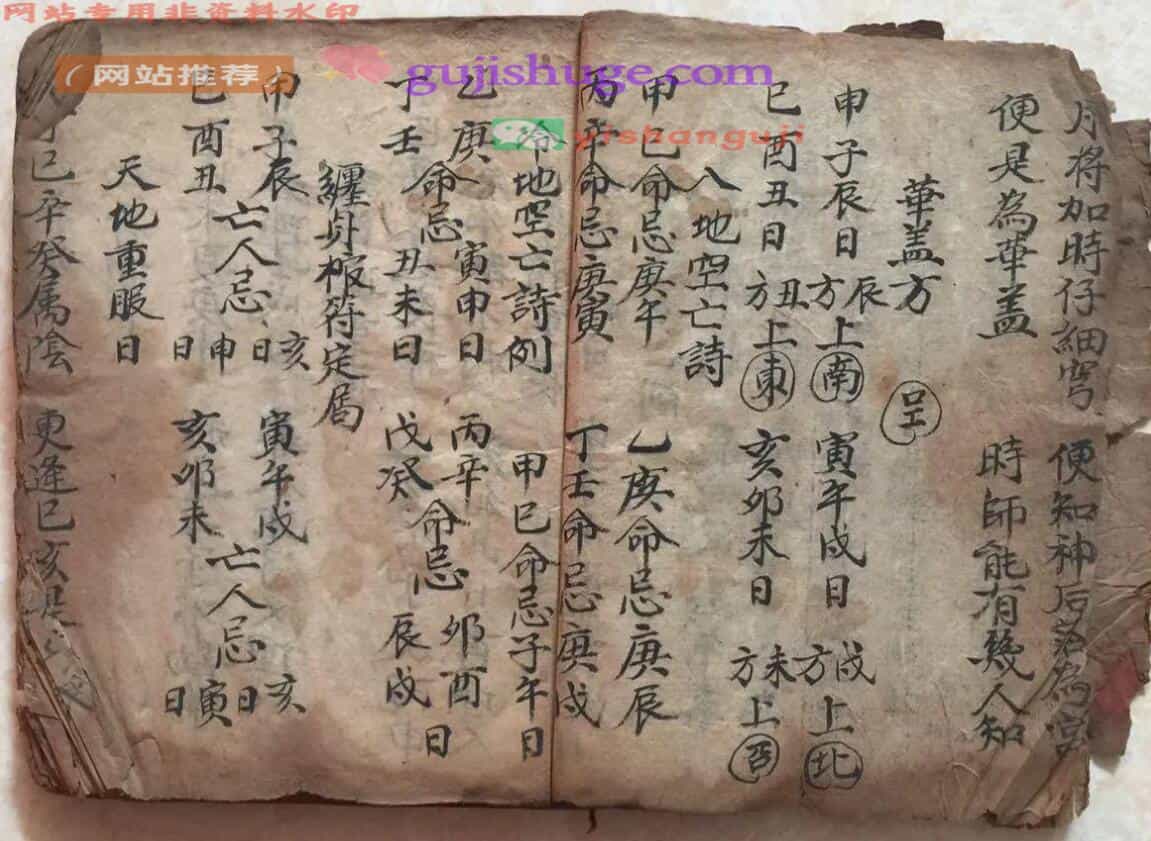 网站专用非资料水印
（网站推荐）
gujishuge.com
yishanguji
月将加時仔細穹 便知神后落為宮
便是為華盖 時師能有幾人知
華盖方
空
申子辰日辰方上南 寅午戌日戌方上北
巳酉丑日丑方上東 亥卯未日未方上酉
入地空亡詩
甲己命忌庚午 乙庚命忌庚辰
丙辛命忌庚寅 丁壬命忌庚戌
冷地空亡詩例
甲巳命忌子午日
乙庚命忌寅申日 丙辛命忌卯酉日
丁壬命忌丑未日 戊癸命忌辰戌日
纏身椒符定局
申子辰亡人忌亥日 寅午戌亡人忌亥日
巳酉丑亡人忌申日 亥卯未亡人忌寅日
天地重服日
巳辛癸属陰 更逢巳亥是